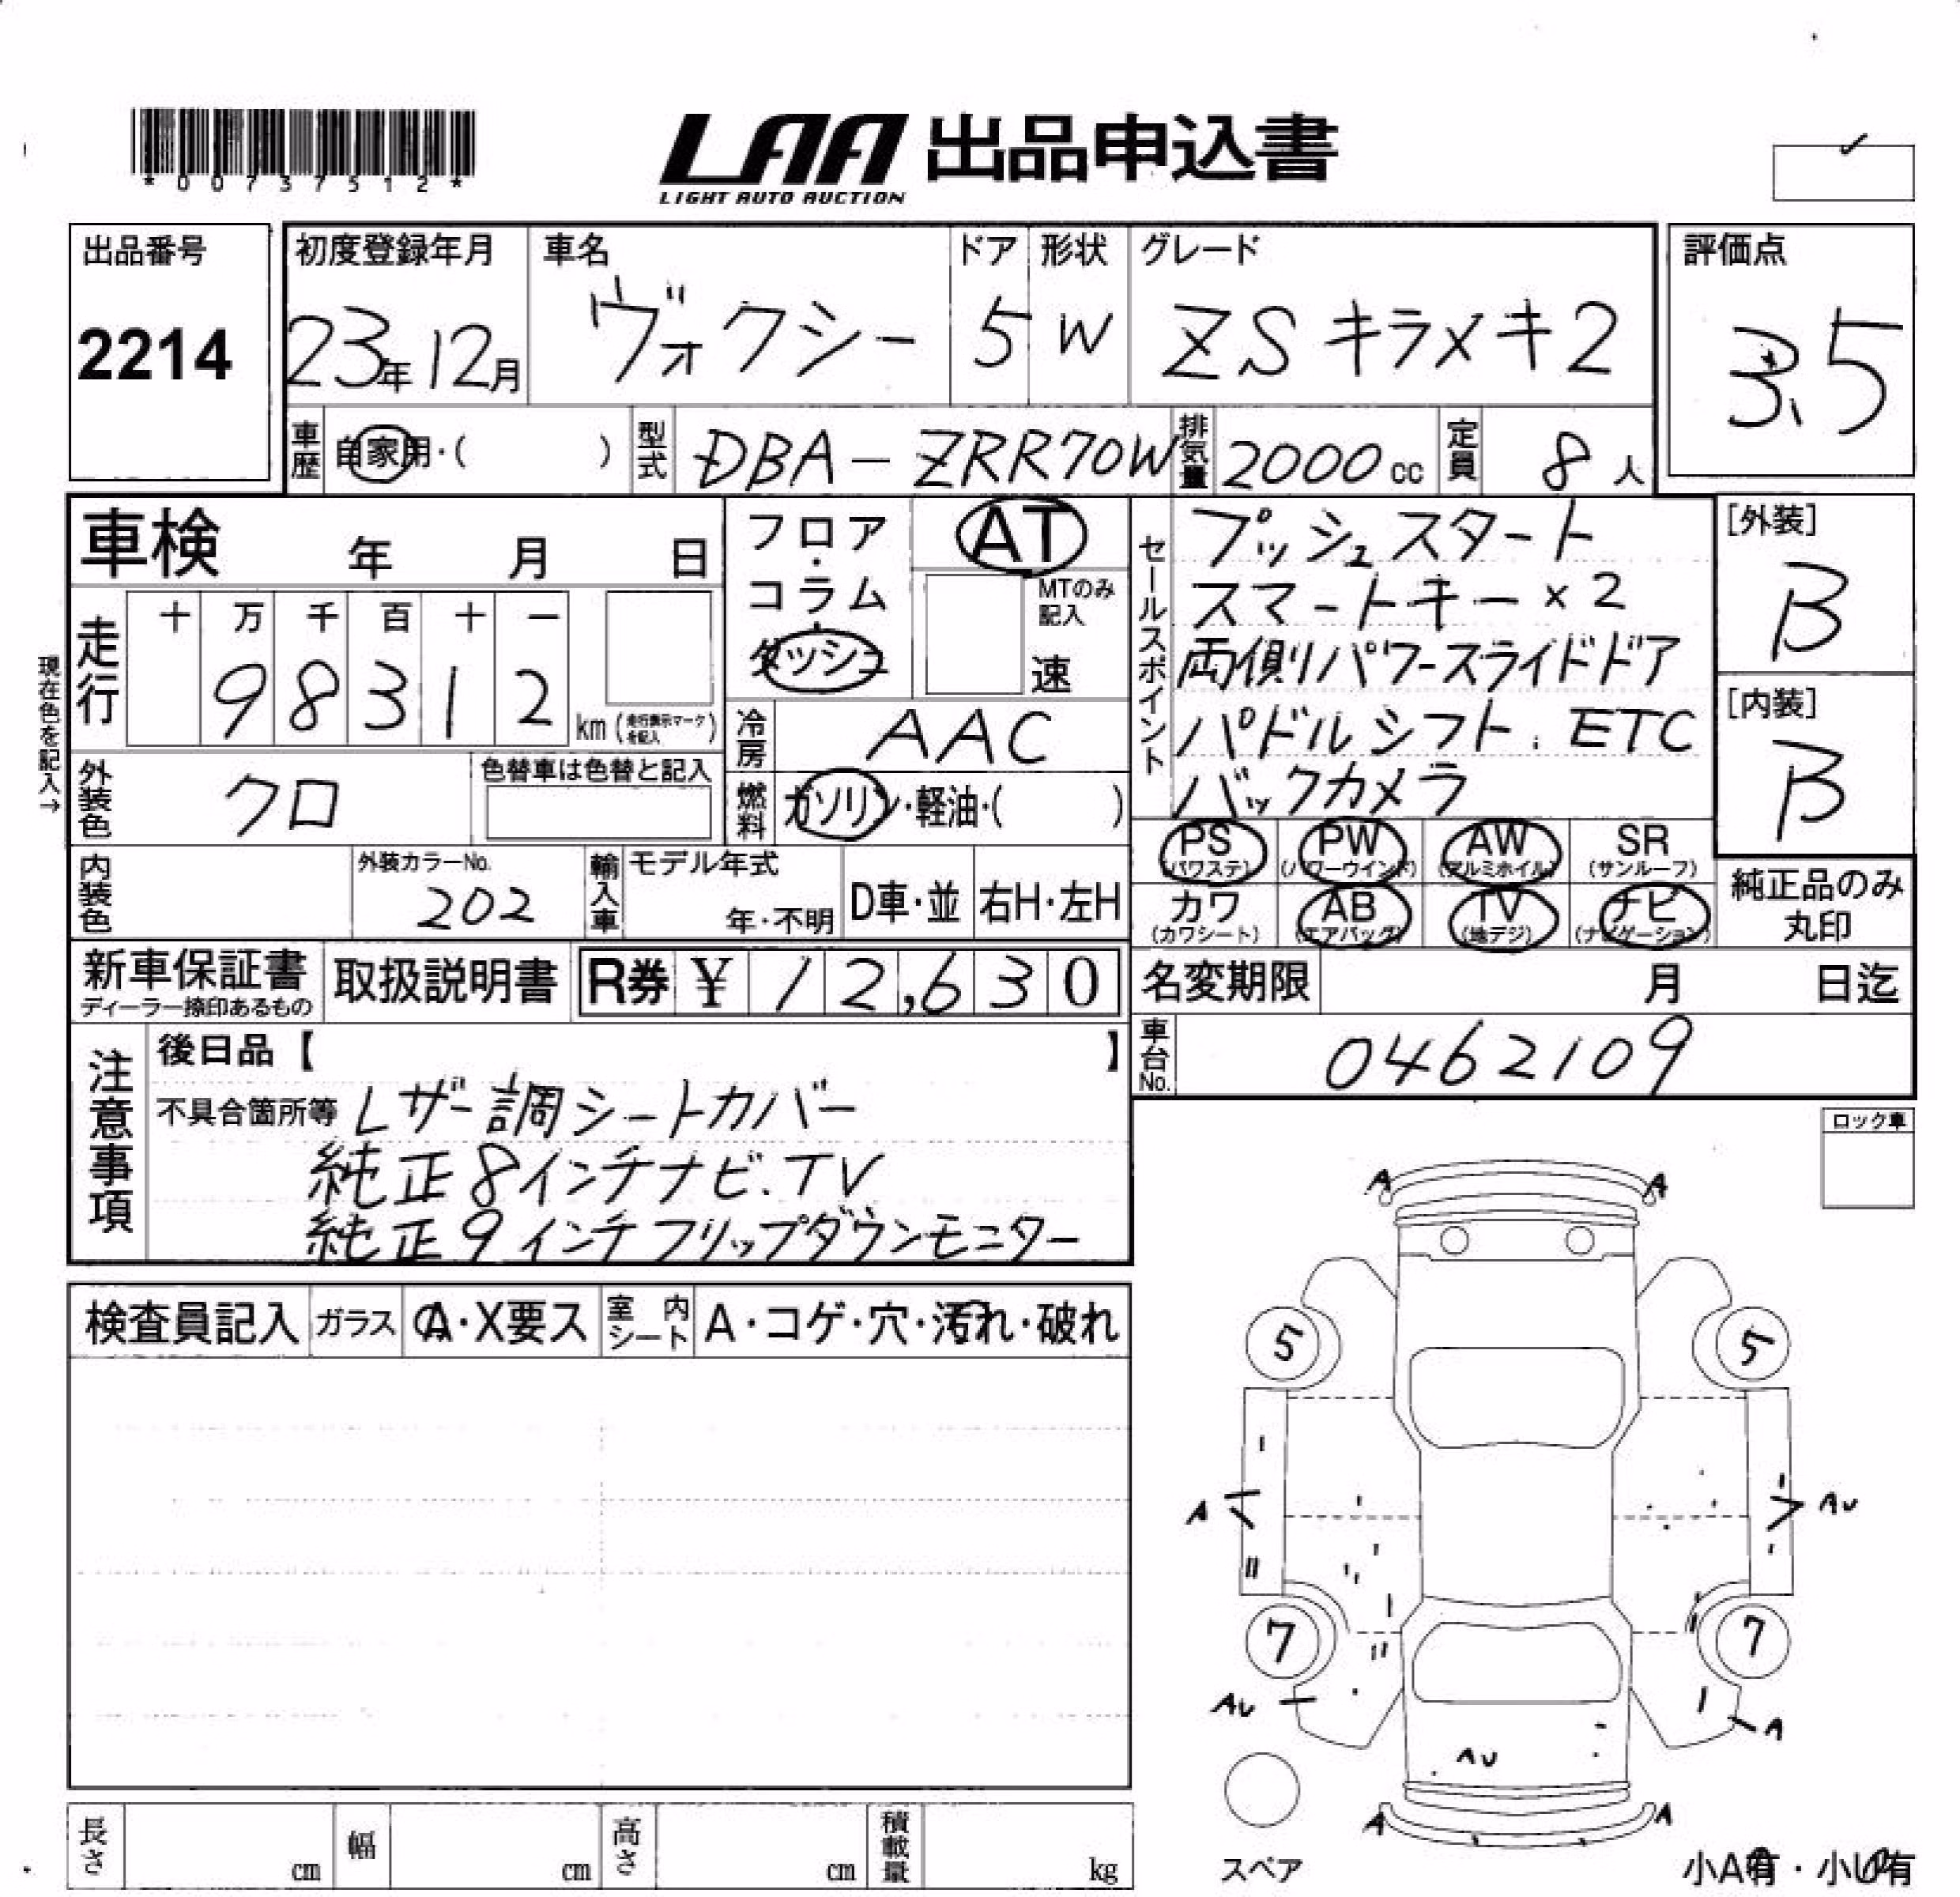 *00737512*
LAA 出品申込書
LIGHT AUTO AUCTION
出品番号
2214
初度登録年月
23年12月
車名
ヴォクシー
ドア
5
形状
W
グレード
ZS キラメキ2
評価点
3.5
車歴
自家用・( )
型式
DBA-ZRR70W
排気量
2000cc
定員
8人
車検 年 月 日
フロア・コラム・ダッシュ
AT
MTのみ記入
速
セールスポイント
プッシュスタート
スマートキー×2
両側パワースライドドア
パドルシフト. ETC
バックカメラ
[外装]
B
[内装]
B
現在色を記入→
走行
十 万 千 百 十 一
9 8 3 1 2
km(走行表示マークを記入)
冷房
AAC
外装色
クロ
色替車は色替と記入
燃料
ガソリン・軽油・( )
PS
(パワステ)
PW
(パワーウインド)
AW
(アルミホイル)
SR
(サンルーフ)
カワ
(カワシート)
AB
(エアバッグ)
TV
(地デジ)
ナビ
(ナビゲーション)
純正品のみ丸印
内装色
外装カラーNo.
202
輸入車
モデル年式
年・不明
D車・並
右H・左H
新車保証書
ディーラー捺印あるもの
取扱説明書
R券 ¥ 12,630
名変期限 月 日迄
車台No.
0462109
注意事項
後日品【 】
不具合箇所等 レザー調シートカバー
純正8インチナビ.TV
純正9インチフリップダウンモニター
ロック車
検査員記入
ガラス
A・X要ス
室内シート
A・コゲ・穴・汚れ・破れ
A A
5 5
A AU
7 7
AU A
AU
A A
スペア
小A有・小U有
長さ cm
幅 cm
高さ cm
積載量 kg